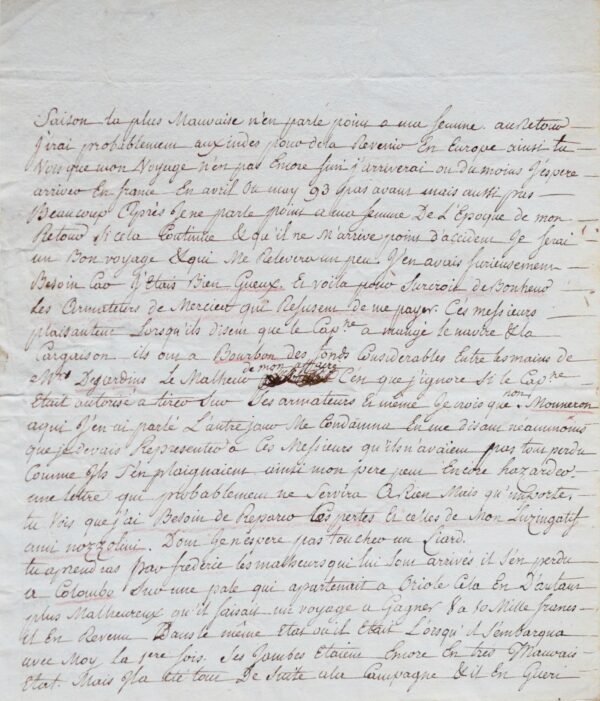 Saison la plus Mauvaise n'en parle point a ma femme. au Retour
J'irai probablement aux indes pour de la Revenir En Europe ainsi tu
Vois que mon Voyage n'en pas Encore fini j'arriverai ou du moins J'espere
arriver En france En avril Ou may 93 pas avant mais aussi pas
Beaucoup Après Je ne parle point a ma femme De L'Epoque de mon
Retour Si cela Continue & qu'il ne M'arrive point d'accident Je ferai
un Bon voyage & qui Me Relevera un peu. J'en avais furieusement
Besoin Car J'étais Bien Gueux. Et voila pour Surcroit de Bonheur
Les Armateurs de Mercier qui Refusent de me payer. Ces messieurs
plaisantent Lorsqu'ils disent que le Capne a mangé le navire & la
Cargaison ils ont a Bourbon des fonds Considerables Entre les mains de
Mrs Desjardins Le Malheur de mon affaire C'en que j'ignore Si le Capne
Etait autorisé a tirer Sur Ses armateurs Et même Je crois que non. Monneron
a qui J'en ai parlé L'autre jour Me Condamna En me disant neanmoins
que je devais Representer a Ces Messieurs qu'ils n'avaient pas tout perdu
Comme Ils S'en plaignaient ainsi mon pere peut Encore hazarder
une lettre qui probablement ne Servira A Rien Mais qu'importe,
tu Vois que j'ai Besoin de Reparer Ces pertes Et celles de Mon
ami nozzolini. Dont Je n'espere pas toucher un Liard.
tu aprendras par frédéric les malheurs qui lui Sont arrivés il S'en perdu
a Colombo Sur une pale qui apartenait a Oriole Cela En D'autant
plus Malheureux qu'il faisait un voyage a Gagner 8 a 10 Mille francs
il En Revenu Dans le même Etat ou il Etait Lorsqu'il S'embarqua
avec Moy la 1ere fois. Ses Jambes Etaient Encore En tres Mauvais
Etat. Mais Il a été tout De Suite a la Campagne & il En Gueri